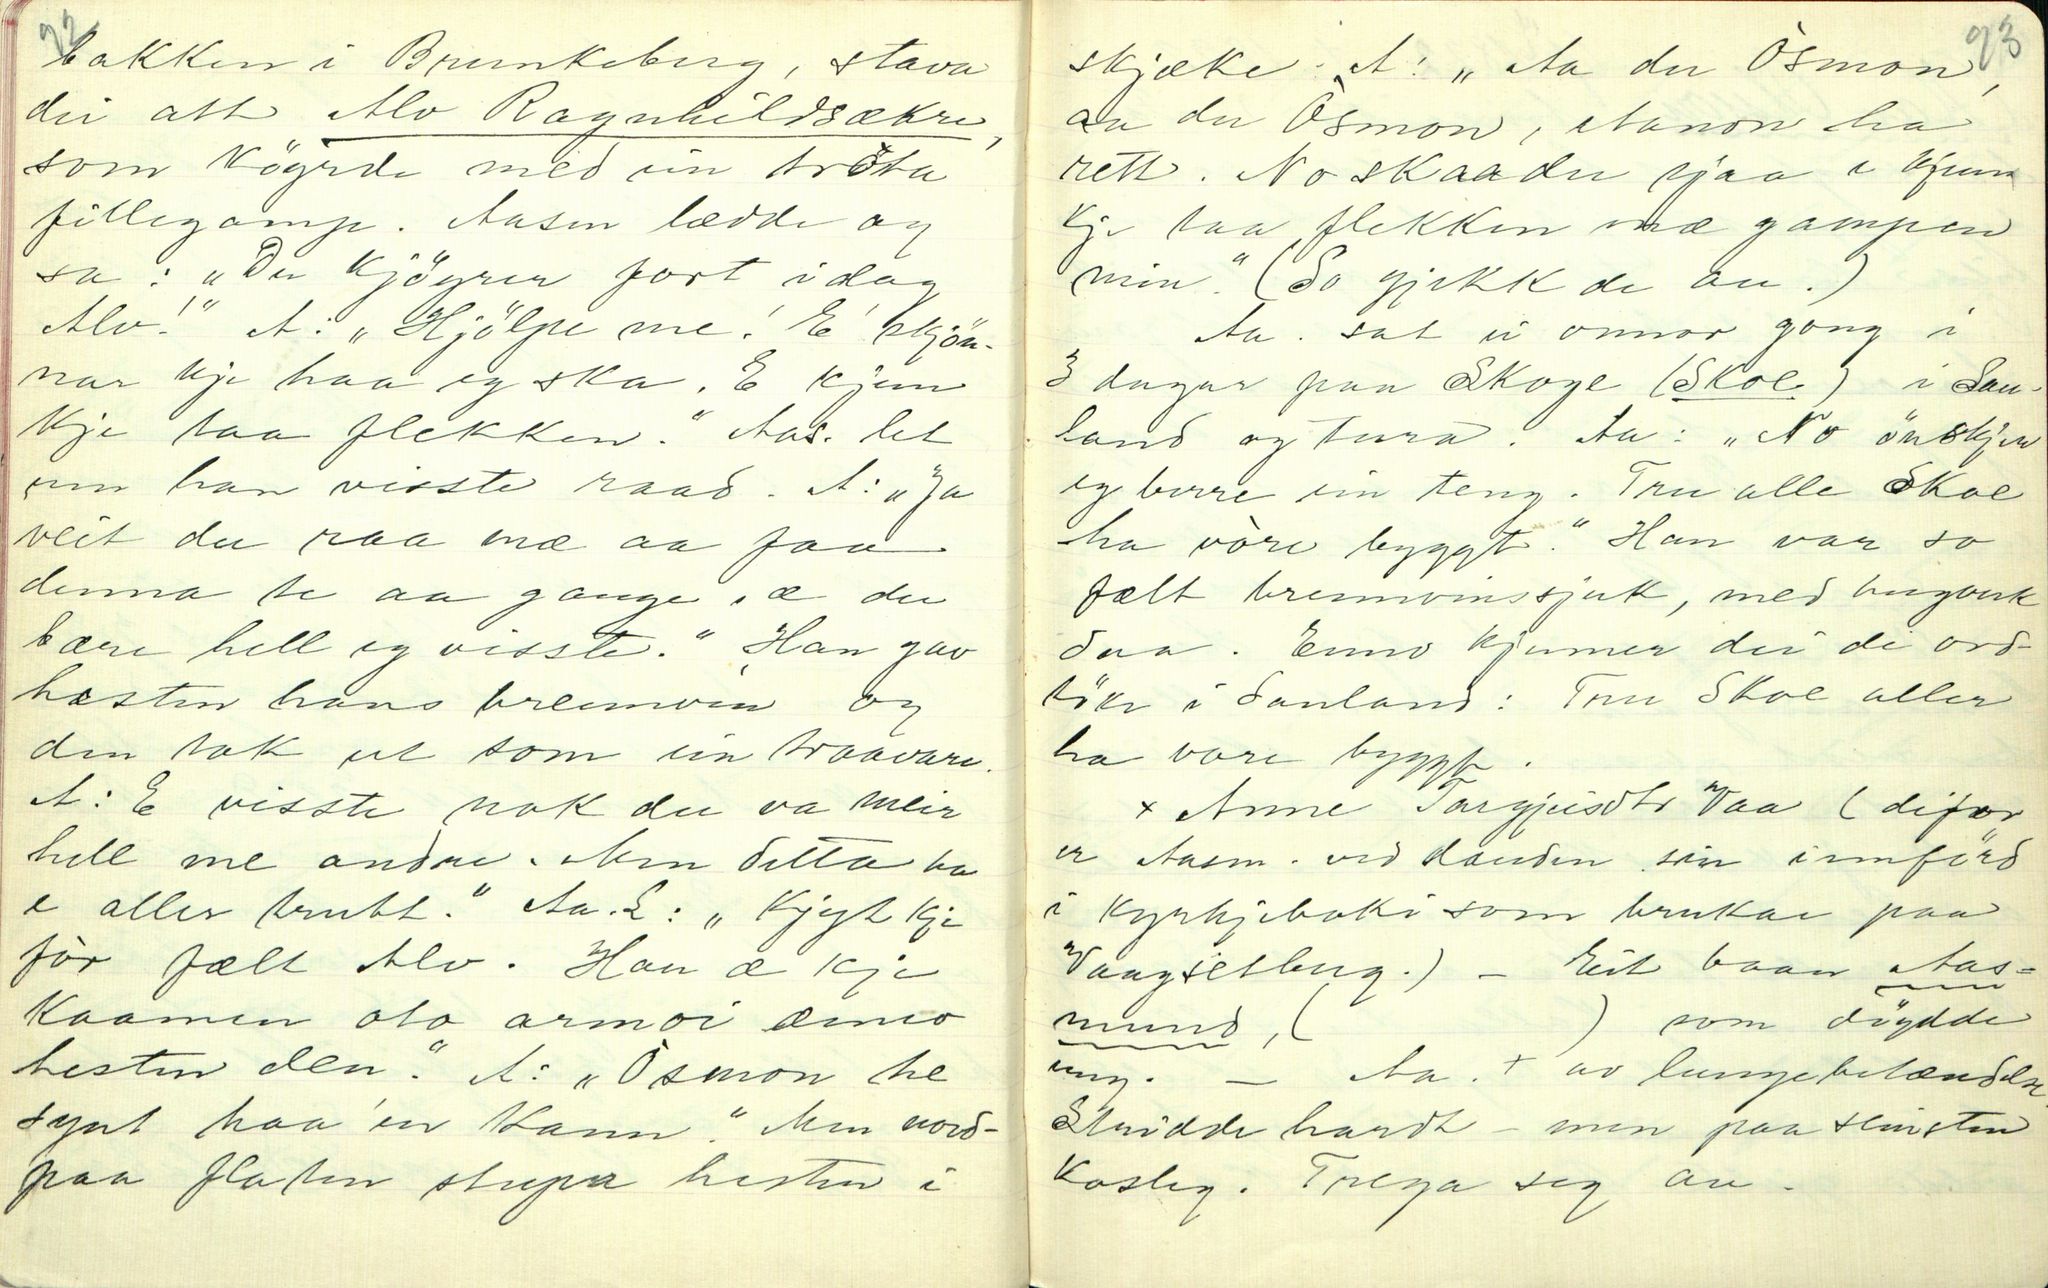 92
bakken i Brunkeberg, stava
dei att Alv Ragnhildsækre,
som köyrde med ein tröta
fillegamp. Aasen lædde og
sa: „Du kjöyrer fort idag
Alv!" A: „Hjölpe me! E' skjön-
nar kje haa eg ska. E kjem
kje taa flekken." Aas. let
um han visste raad. A: „Ja
veit du raa mæ aa faa
denna te aa gange, æ du
bære hell eg visste." Han gav
hesten hans brennvin og
den tok ut som ein traavare.
A: E visste nok du va meir
hell me andre. Men detta ha
e aller trutt." Aa. L: „Kjyt kje
fòr fælt Alv. Han æ kje
kaamen oto armoi ænno
hesten den." A: „Òsmon he
synt haa 'en kann." Men nord-
paa flaten stupa hesten i
93
skjæke. A: „Aa du Òsmon,
aa du Òsmon, Aanon ha
rett. No skaadu sjaa e kjem
kje taa flekken mæ gampen
min." (So gjekk de au.)
Aa. sat ei onnor gong i
3 dagar paa Skoge (Skoe) i Sau-
land og tura. Aa: „No önskjer
eg berre ein teng. Tru alle Skoe
ha vòre byggt." Han var so
fælt brennvinssjuk, med hugverk
daa. Enno kjenner dei de ord-
töke i Sauland: Tru Skoe aller
ha vore byggt.
x Anne Targjeisdtr Vaa (difor
er Aasm. ved dauden sin innförd
i kyrkjeboki som brukar paa
Vaagsletberg.) – Eit baan Aas-
mund, ( ) som döydde
ung. – Aa. + av lungebetændelse.
Stridde hardt – men paa slutten
kosleg. Trega seg au.